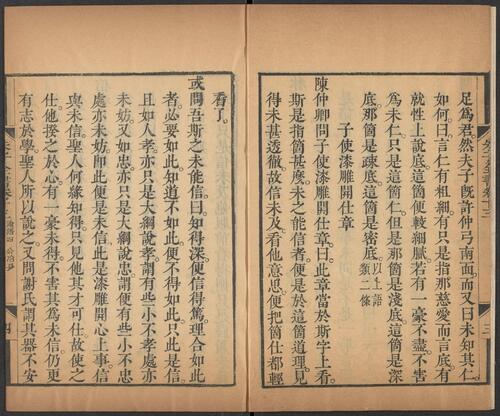 足爲君然夫子旣許仲弓南面而又曰未知其仁
如何曰言仁有粗細有只是指那慈愛而言底有
就性上說底這箇便較細膩若有一毫不盡不害
爲未仁只是這箇仁但是那箇是淺底這箇是深
底那箇是疎底這箇是密底以上語類二條
子使漆雕開仕章
陳仲卿問子使漆雕開仕章曰此章當於斯字上看
斯是指箇甚麼未之能信者便是於這箇道理見
得未甚透徹故信未及看他意思便把箇仕都輕
看了
或問吾斯之未能信曰知得深便信得篤理合如此
者必要如此知道不如此便不得如此只此是信
且如人孝亦只是大綱說孝謂有些小不孝處亦
未妨又如忠亦只是大綱說忠謂便有些小不忠
處亦未妨卽此便是未信此是漆雕開心上事信
與未信聖人何緣知得只見他其才可仕故使之
仕他揆之於心有一毫未得不害其爲未信仍更
有志於學聖人所以說之又問謝氏謂其器不安